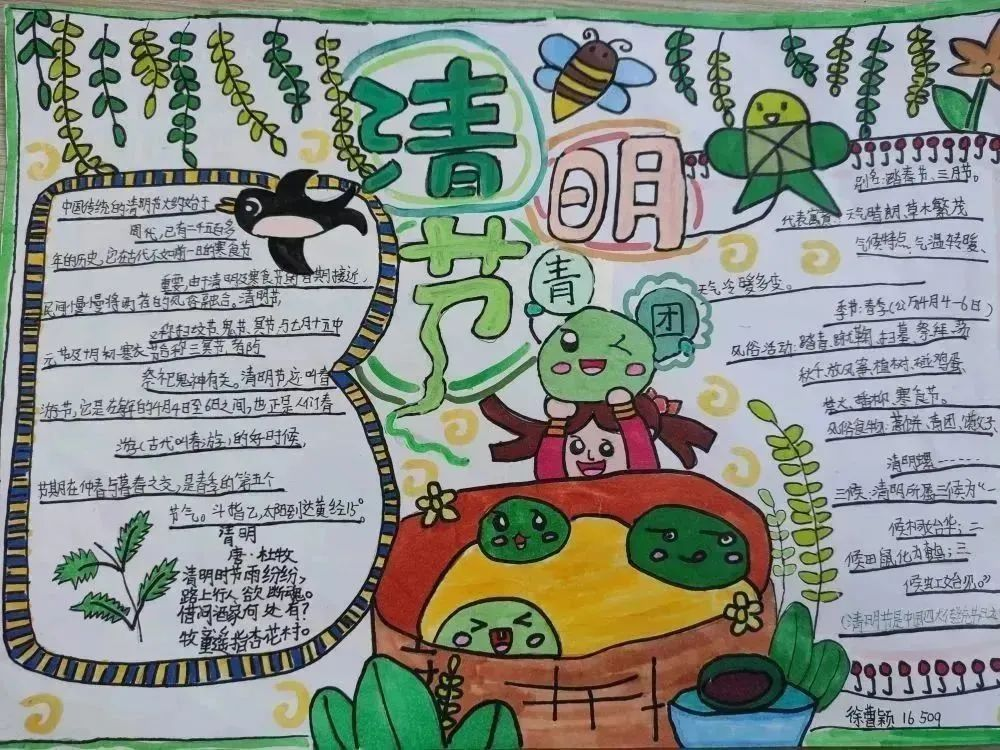 清明节
青
团
中国传统的清明节大约始于
周代,已有二千五百多
年的历史,它在古代不如前一日的寒食节
重要,由于清明及寒食节的日期接近,
民间慢慢将两者的风俗融合。清明节
又称扫坟节、鬼节、冥节,与七月十五中
元节及十月初寒衣节合称三冥节,都与
祭祀鬼神有关。清明节还叫春
游节,它是在每年的4月4日至6日之间,也正是人们春
游(古代叫春游)的好时候,
节期在仲春与暮春之交,是春季的第五个
节气。斗指乙,太阳到达黄经15°。
清明
唐·杜牧
清明时节雨纷纷,
路上行人欲断魂。
借问酒家何处有?
牧童遥指杏花村。
别名:踏春节、三月节。
代表寓意:天气晴朗,草木繁茂
气候特点:气温转暖、
天气冷暖多变。
季节:春季(公历4月4-6日)
风俗活动:踏春、蹴鞠、扫墓、祭拜、荡
秋千、放风筝、植树、碰鸡蛋
禁火、插柳、寒食节。
风俗食物:薄饼、青团、馓子、
清明螺……
三候:清明所属三候为“一
候桐始华;二
候田鼠化为鴽;三
候虹始见。”
(清明节是中国四大传统节日之
徐曹颖 16 509